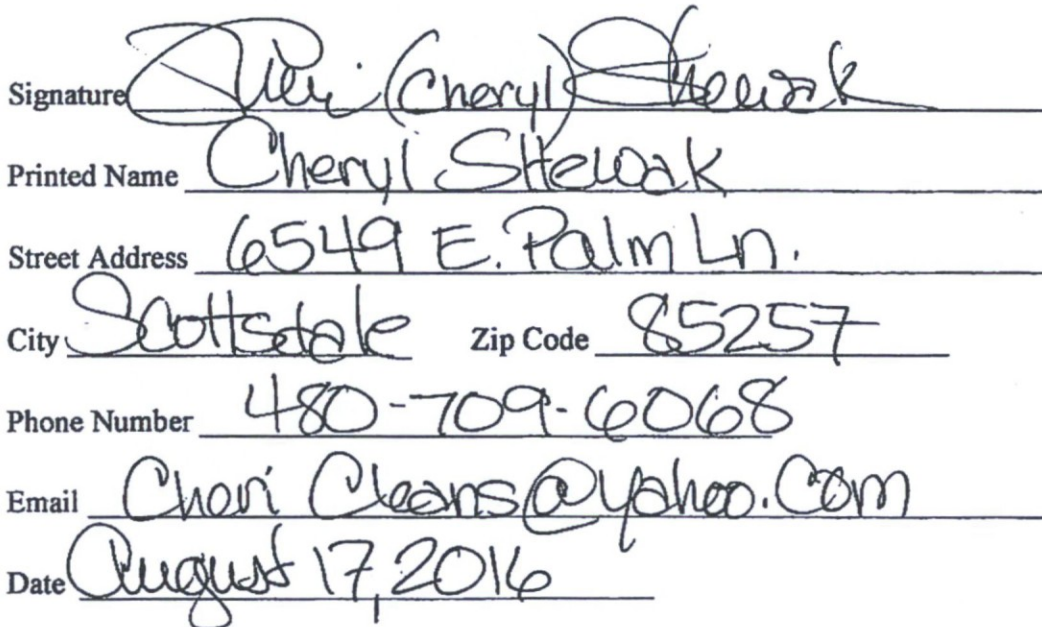 Signature Cheri (Cheryl) Shewak
Printed Name Cheryl SHewak
Street Address 6549 E. Palm Ln.
City Scottsdale Zip Code 85257
Phone Number 480-709-6068
Email Cheri Cleans@yahoo.com
Date August 17, 2016